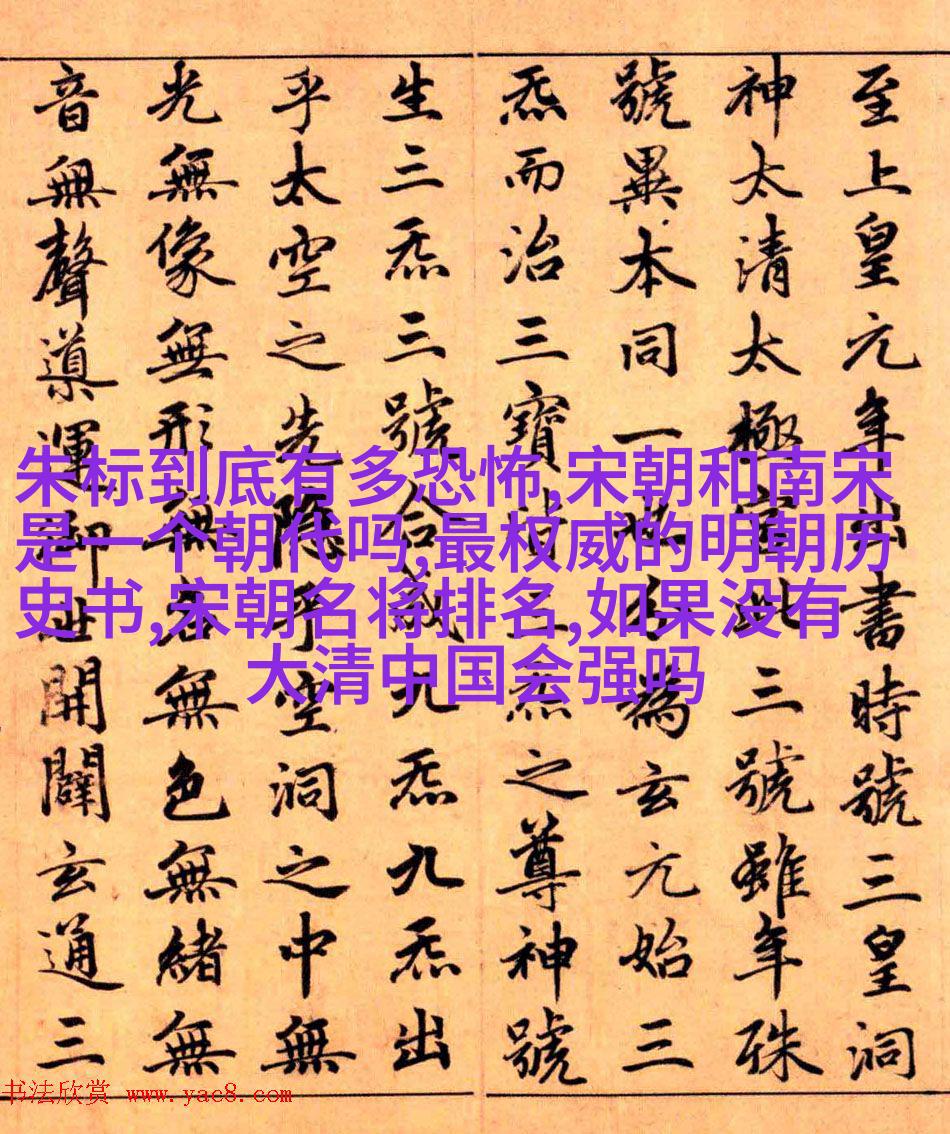 至上皇元年出書時號三皇洞
神太清太極宮此三號雖年殊
號異本同一也分為玄元始三
炁而治三寶皆三炁之尊神號
生三炁三號合成九炁九炁出
乎太空之先隱乎空洞之中無
光無像無形無名無色無緒無
音無聲導運御世開闢玄通三
朱标到底有多恐怖,宋朝和南宋
是一个朝代吗,最权威的明朝历
史书,宋朝名将排名,如果没有
大清中国会强吗
书法欣赏 www.yac8.com